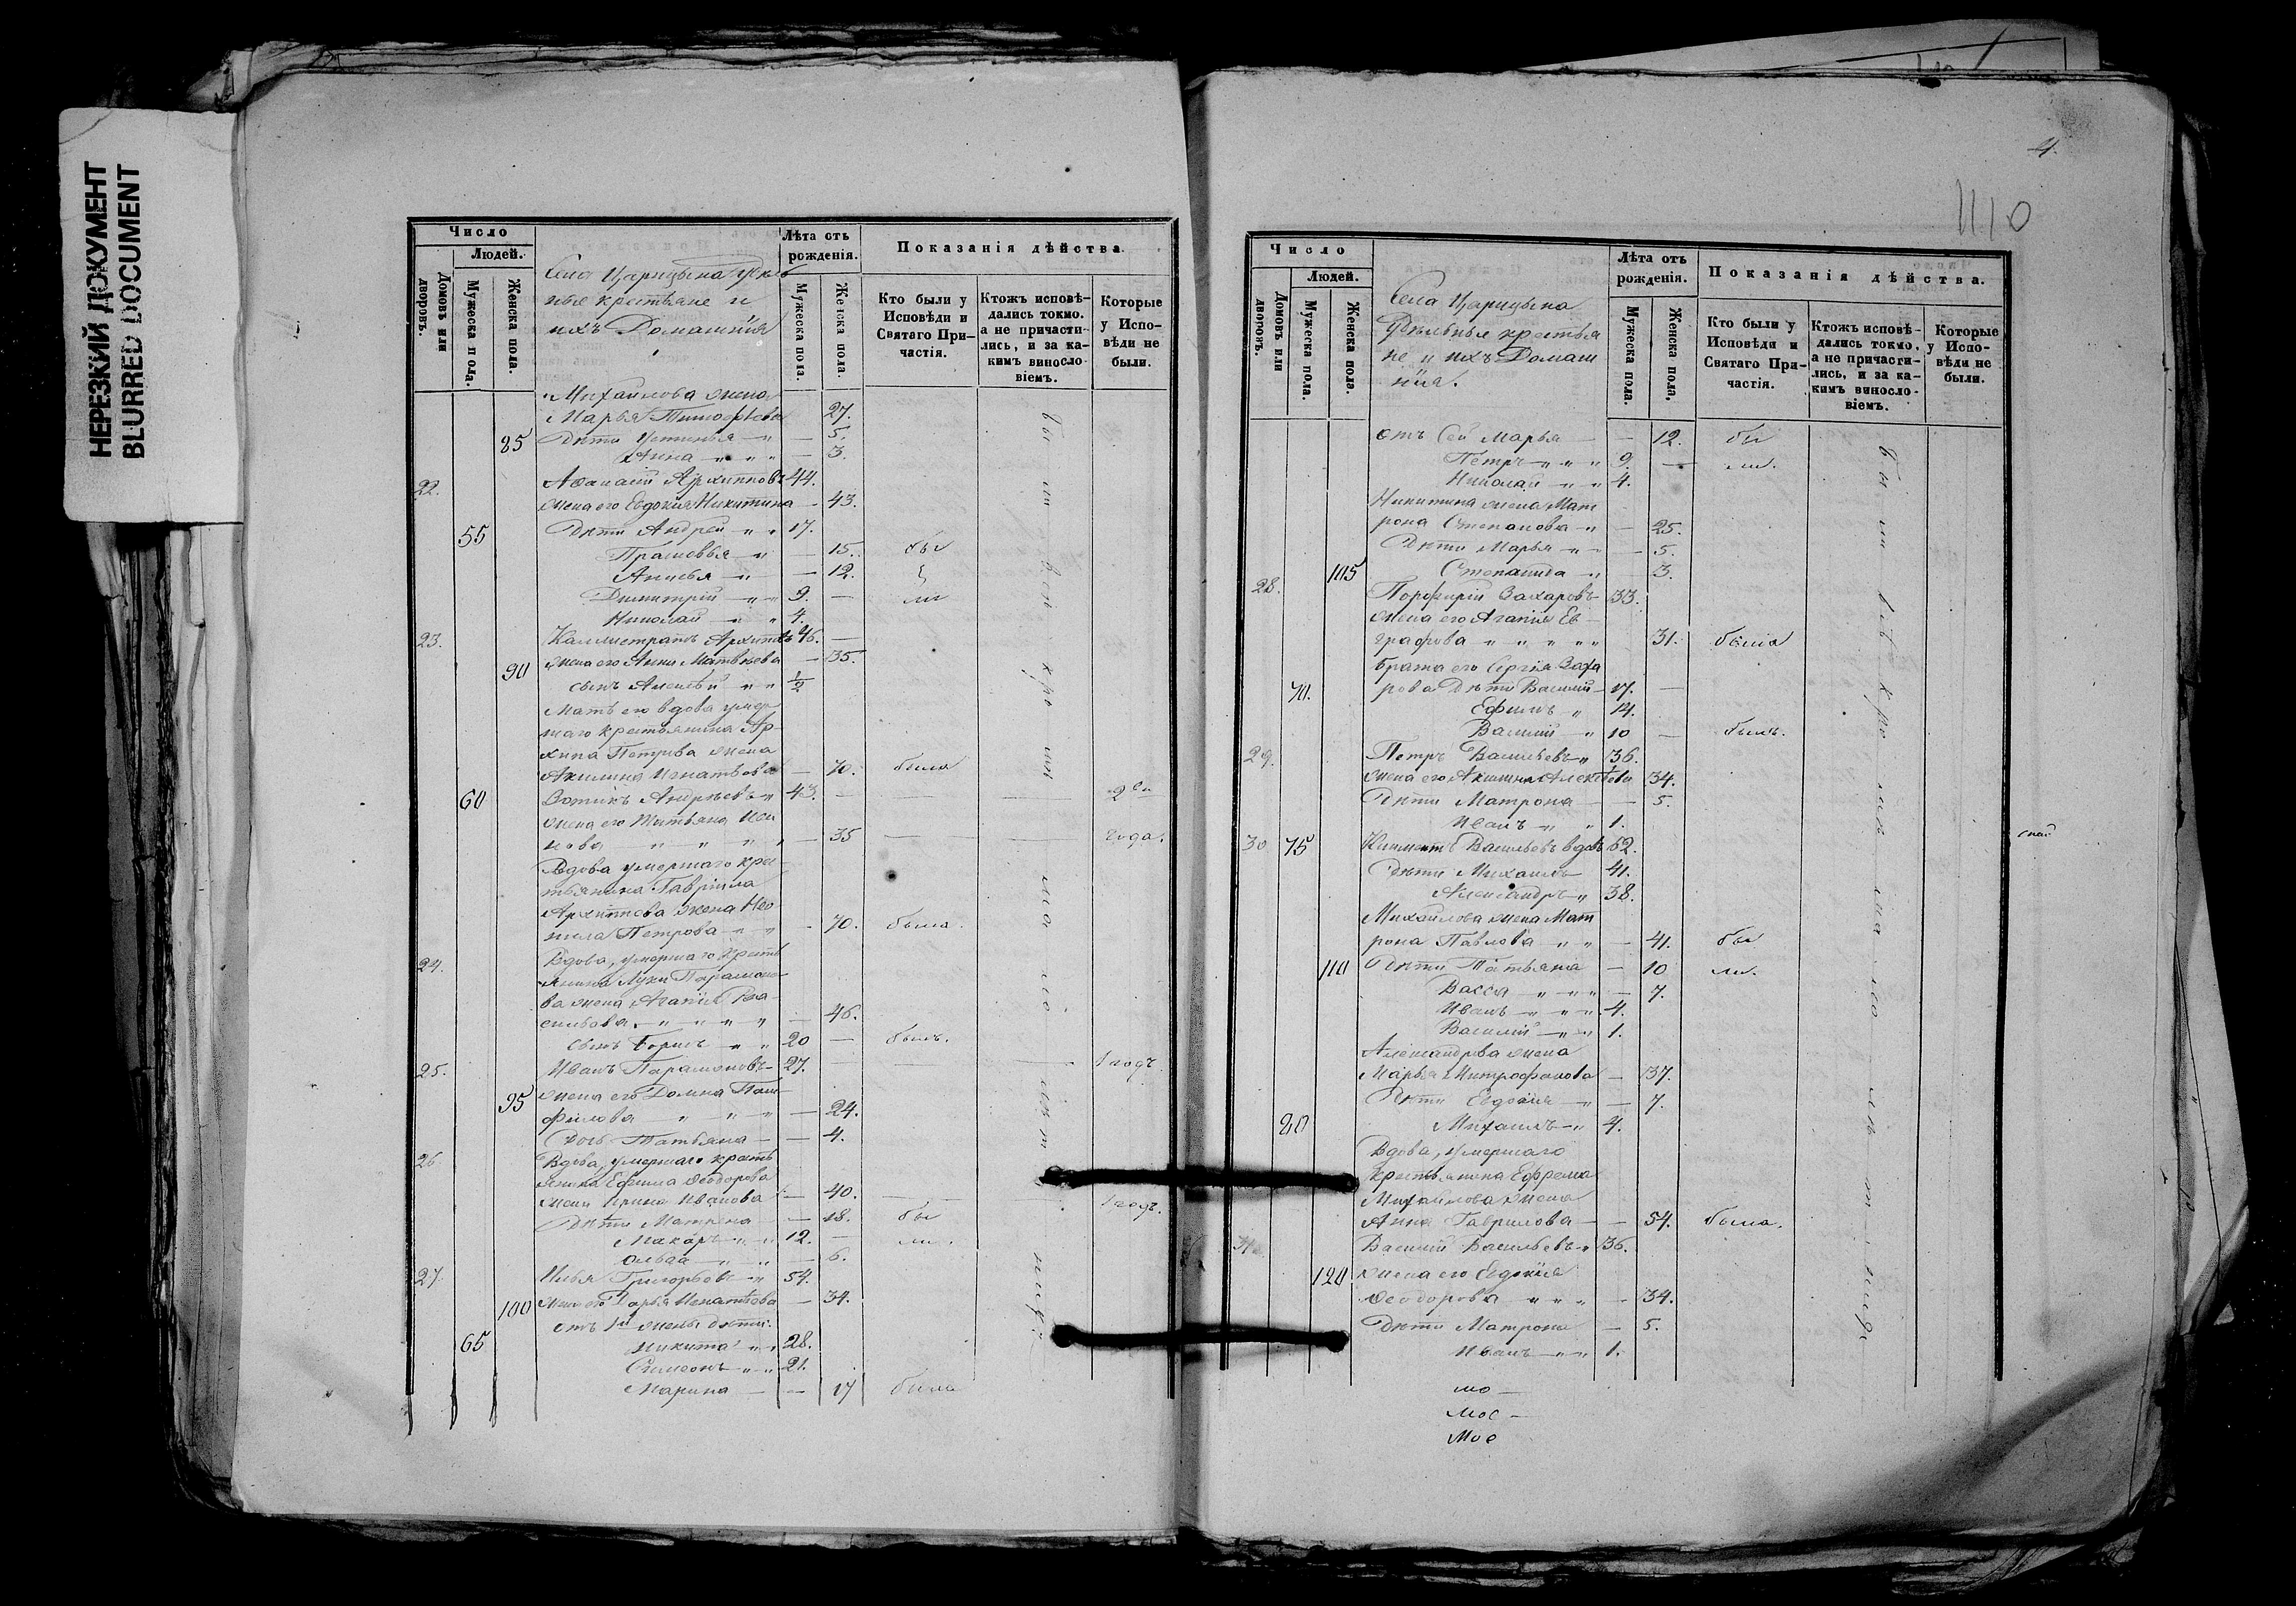 НЕРЕЗКИЙ ДОКУМЕНТ
BLURRED DOCUMENT
Число
Людей.
Домовъ или дворовъ.
Мужеска пола.
Женска пола.
Лѣта отъ рожденія.
Мужеска пола.
Женска пола.
Показанія дѣйства
Кто были у Исповѣди и Святаго Причастія.
Ктожъ исповѣдались токмо, а не причастились, и за какимъ винословіемъ.
Которые у Исповѣди не были.
Села Царицына
ные крестьяне и
ихъ Домашнія
Михайлова жена
Марья Тимофѣева 27.
85 Дѣти Устинья — 5.
Анна — 3.
22. Аѳанасій Архиповъ 44.
жена его Евдокія Никитина — 43.
55 Дѣти Андрей 17.
Прасковья — 15. бы
Анисья — 12.
Димитрій 9. — ли
Николай 4.
23. Каллистратъ Архиповъ 46. —
90 жена его Анна Матвѣева — 35.
сынъ Алексѣй ½
Мать его вдова умер
шаго крестьянина Ар-
хипа Петрова жена
Акилина Игнатьева — 70. была
60 Андреевъ 43. — 2
жена его Татьяна
нова — 35 — года.
Вдова умершаго крес-
тьянина Гавріила
Архипова жена Нео
нила Петрова - 70. была.
24. Вдова, умершаго кресть
янина Луки Парамоно-
ва жена Агапія Ва-
сильева — 46.
сынъ Борисъ 20 — былъ.
25. Иванъ Парамоновъ 27. — 1 годъ
95 жена его Домна Пам-
филова — 24.
дочь Татьяна — 4.
26 Вдова, умершаго кресть
янина Ефима Ѳеодорова
жена Ирина Иванова — 40. — 1 годъ.
Дѣти Матрена — 18. бы
Макаръ 12. — ли.
Ольга — 6.
27. Илья Григорьевъ 54.
100 жена его Дарья Игнатьева — 34.
отъ 1й жены дѣти:
65 Никита 28.
Симеонъ 21.
Марина — 17 была
4.
1110
Число
Людей.
Домовъ или дворовъ.
Мужеска пола.
Женска пола.
Лѣта отъ рожденія.
Мужеска пола.
Женска пола.
Показанія дѣйства.
Кто были у Исповѣди и Святаго Причастія.
Ктожъ исповѣдались токмо, а не причастились, и за какимъ винословіемъ.
Которые у Исповѣди не были.
Села Царицына
Удѣльные крестья
не и ихъ Домаш
нія.
отъ сей Марья — 12. бы
Петръ 9. — ли.
Николай 4.
Никитина жена Мат
рона Степанова — 25.
Дѣти Марья — 5.
105 Степанида 3.
28. Порфирій Захаровъ 33.
жена его Агапія Ев-
графова 31. была
брата его Сергія Заха
70. рова Дѣти Василій 17. —
Ефимъ 14.
Василій 10 — былъ.
29. Петръ Васильевъ 36.
жена его Акилина Алексѣева 34.
Дѣти Матрона — 5.
Иванъ 1.
30 75 Климентъ Васильевъ вдовъ 62.
Дѣти Михаилъ 41.
Александръ 38.
Михайлова жена Мат
рона Павлова — 41. бы
110 Дѣти Татьяна — 10 ли.
Васса — 7.
Иванъ 4.
Василій 1.
Александрова жена
Марья Митрофанова — 37.
Дѣти Евдокія — 7.
80 Михаилъ 4.
Вдова, умершаго
крестьянина Ефрема
Михайлова жена
Анна Гаврилова — 54. была.
31. Василій Васильевъ 36.
120 жена его Евдокія
Ѳеодорова - 34.
Дѣти Матрона — 5.
Иванъ 1.
мо —
мое —
мое